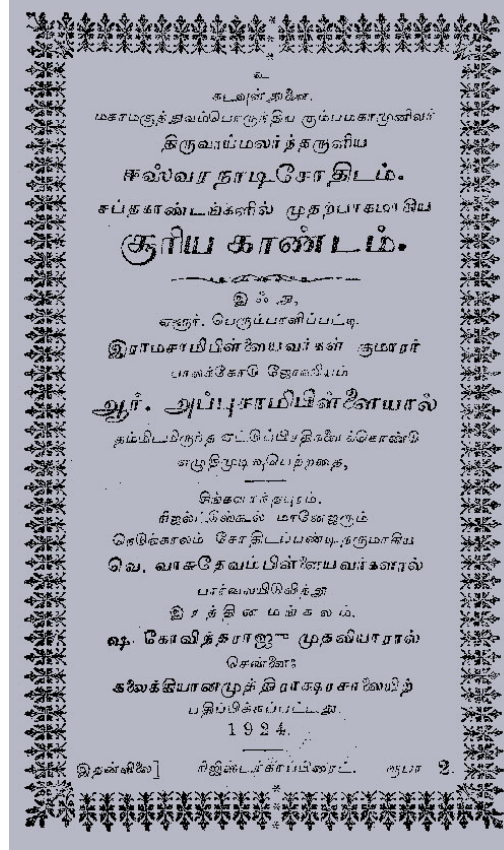 உ
கடவுள் துணை.
மகாமகத்துவம்பொருந்திய ரும்பமகாமுனிவர்
திருவாய்மலர்ந்தருளிய
ஈஸ்வர நாடிசோதிடம்.
சப்தகாண்டங்களில் முதற்பாகமாகிய
சூரிய காண்டம்.
இஃது,
ஏரூர். பெரும்பாளிப்பட்டி.
இராமசாமிபிள்ளையவர்கள் குமாரர்
பாலர்கோடு ஜோஸியம்
ஆர். அப்புசாமிபிள்ளையால்
தம்மிடமிருந்த ஏட்டுப்பிரதிகளைக்கொண்டு
எழுதிமுடிவுபெற்றதை,
சிங்களாந்தபுரம்.
ரிஜல்ட்டுஸ்கூல் மானேஜரும்
நெடுங்காலம் சோதிடப்பண்டிதருமாகிய
வெ. வாசுதேவம்பிள்ளையவர்களால்
பார்வையிடுவித்து
இரத்தினமங்கலம்.
ஷ. கோவிந்தராஜு முதலியாரால்
சென்னை;
கலைக்கியானமுத்திராக்ஷரசாலையிற்
பதிப்பிக்கப்பட்டது.
1924.
இதன்விலை] ரிஜிஸ்டர்காப்பிரைட். ரூபா 2.